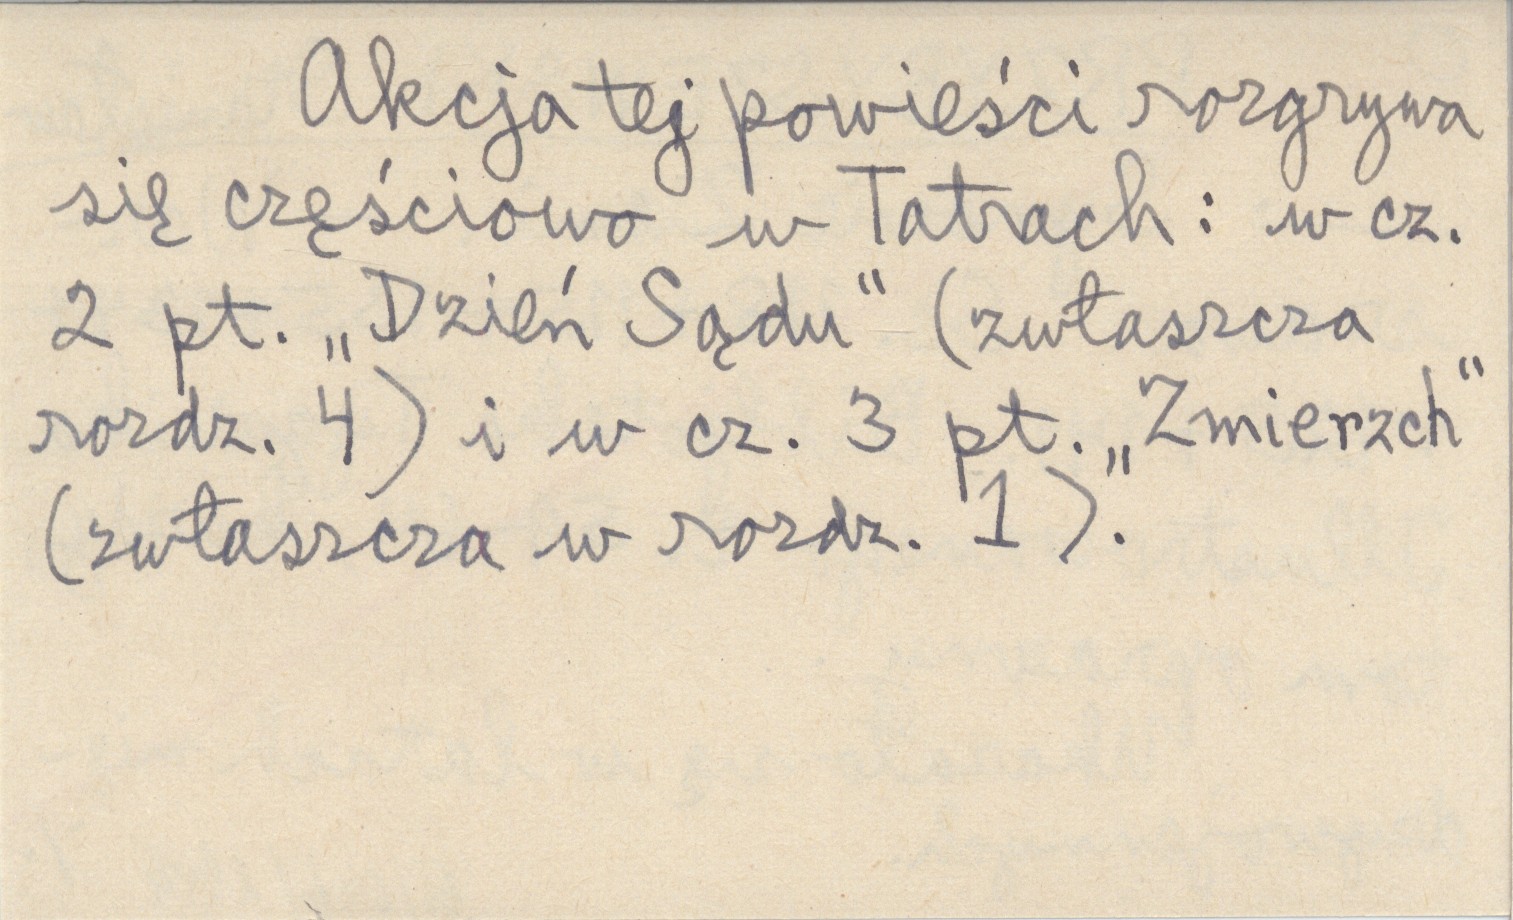 Akcja tej powieści rozgrywa
się częściowo w Tatrach: w cz.
2 pt. „Dzień Sądu“ (zwłaszcza
rozdz. 4) i w cz. 3 pt. „Zmierzch“
(zwłaszcza w rozdz. 1).